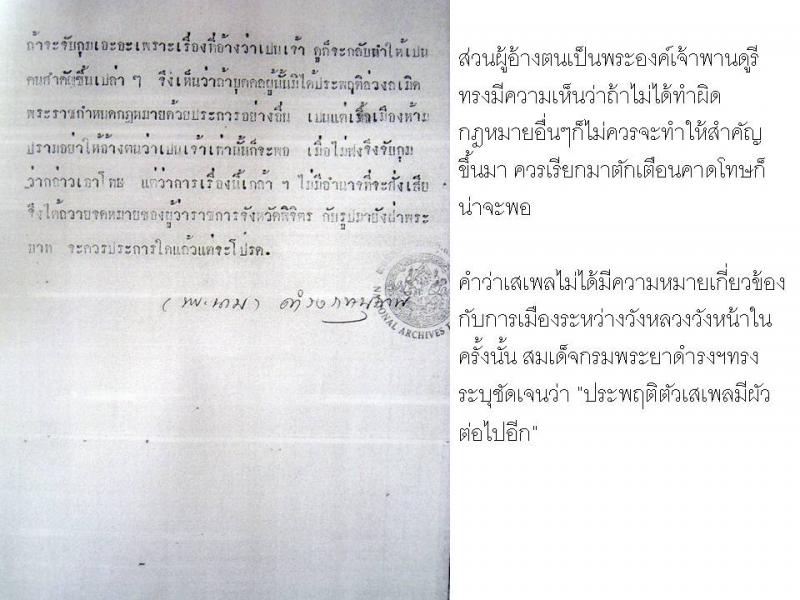 ถ้าจะจับกุมเอะอะเพราะเรื่องที่อ้างว่าเปนเจ้า ดูก็จะกลับทำให้เปน
คนสำคัญขึ้นเปล่า ๆ จึงเห็นว่าถ้าบุคคลผู้นั้นมิได้ประพฤติล่วงละเมิด
พระราชกำหนดกฎหมายด้วยประการอย่างอื่น เปนแต่เมื้อเมืองห้าม
ปรามอย่าให้อ้างตนว่าเปนเจ้าเท่านั้นก็จะพอ เมื่อไม่ฟังจึงจับกุม
ว่ากล่าวเอาโทษ แต่ว่าการเรื่องนี้เกล้า ฯ ไม่มีอำนาจที่จะสั่งเสีย
จึงได้ถวายจดหมายของผู้ว่าราชการจังหวัดพิจิตร กับรูปมายังฝ่าพระ
บาท จะควรประการใดแล้วแต่จะโปรด.
(พระนาม) ดำรงราชานุภาพ
NATIONAL ARCHIVES
ส่วนผู้อ้างตนเป็นพระองค์เจ้าพานดูรี
ทรงมีความเห็นว่าถ้าไม่ได้ทำผิด
กฎหมายอื่นๆก็ไม่ควรจะทำให้สำคัญ
ขึ้นมา ควรเรียกมาตักเตือนคาดโทษก็
น่าจะพอ
คำว่าเสเพลไม่ได้มีความหมายเกี่ยวข้อง
กับการเมืองระหว่างวังหลวงวังหน้าใน
ครั้งนั้น สมเด็จกรมพระยาดำรงฯทรง
ระบุชัดเจนว่า "ประพฤติตัวเสเพลมีผัว
ต่อไปอีก"